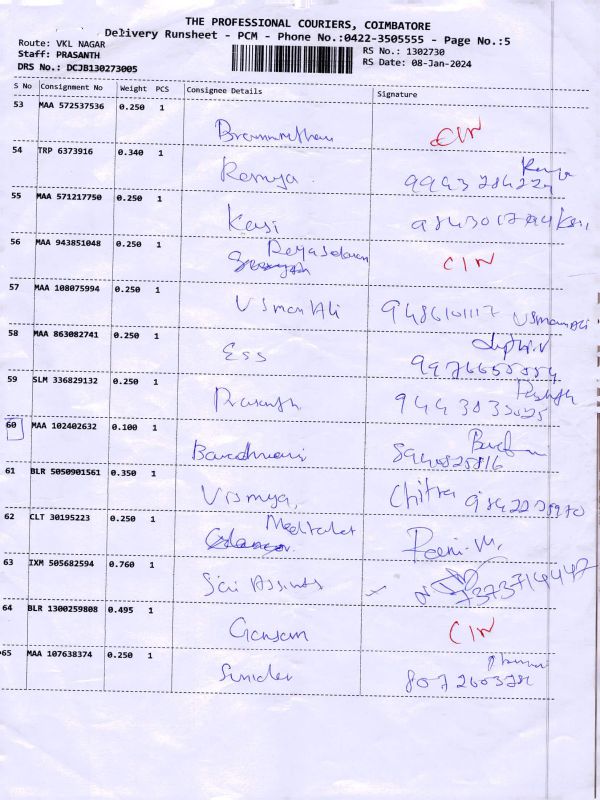 THE PROFESSIONAL COURIERS, COIMBATORE
Delivery Runsheet - PCM - Phone No.:0422-3505555 - Page No.:5
Route: VKL NAGAR
Staff: PRASANTH
DRS No.: DCJB130273005
RS No.: 1302730
RS Date: 08-Jan-2024
S No Consignment No Weight PCS Consignee Details Signature
53 MAA 572537536 0.250 1
CIN
54 TRP 6373916 0.340 1
Ramya
55 MAA 571217750 0.250 1
Kasi
56 MAA 943851048 0.250 1
CIN
57 MAA 108075994 0.250 1
Usman Ali 9486101117 Usman Ali
58 MAA 863082741 0.250 1
Ess
59 SLM 336829132 0.250 1
Prasanth
60 MAA 102402632 0.100 1
8940825816
61 BLR 5050901561 0.350 1
Vismya, Chitra
62 CLT 30195223 0.250 1
63 IXM 505682594 0.760 1
Sri Assints 7373714447
64 BLR 1300259808 0.495 1
Gansan CIN
65 MAA 107638374 0.250 1
Sunder